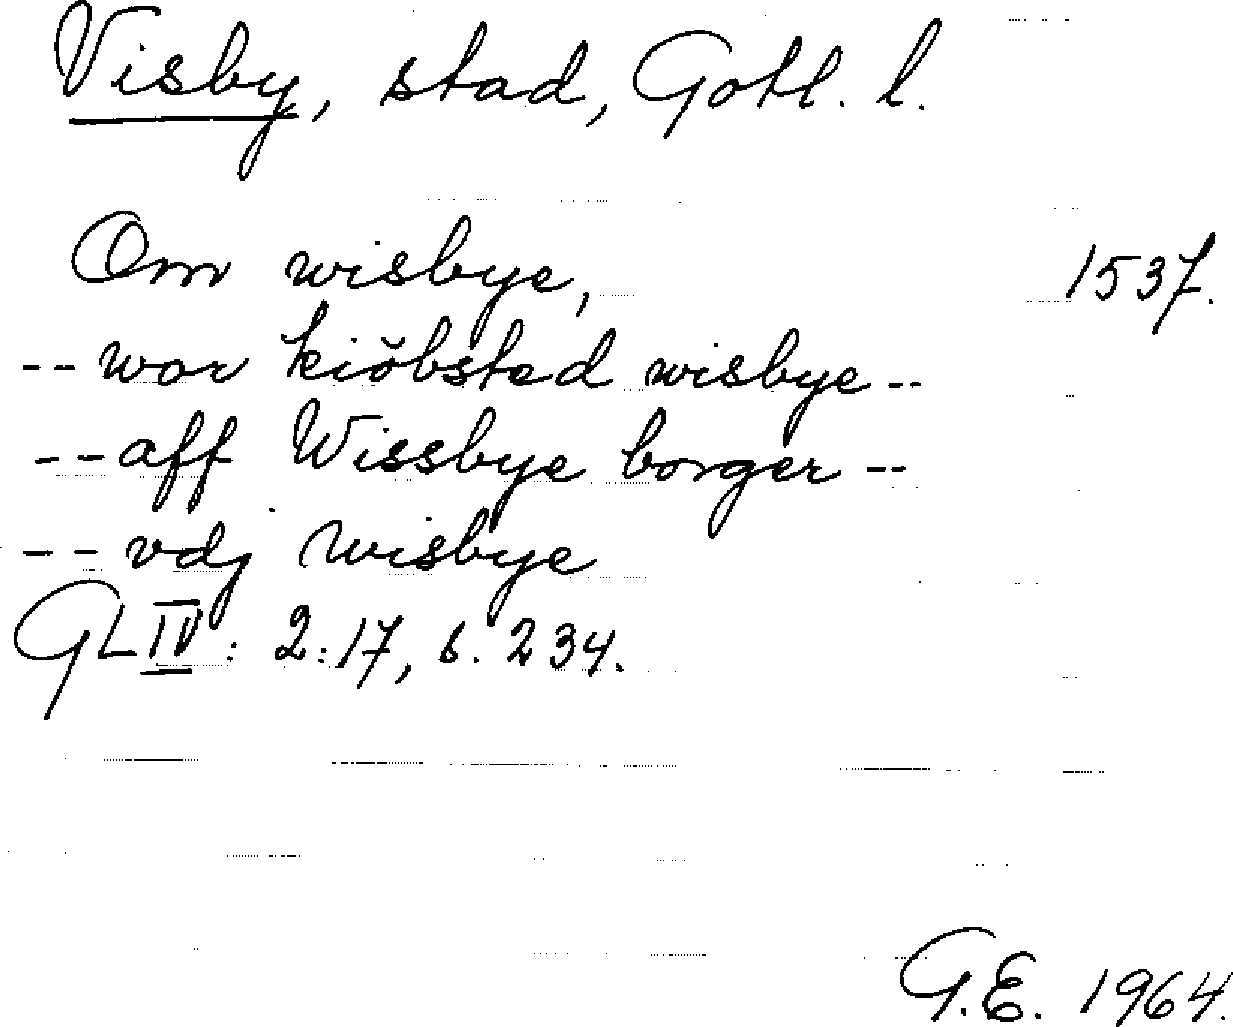 Visby, stad, Gotl. l.
Om wisbye, 1537.
-- wor kiöbsted wisbye --
-- aff Wissbye borger --
-- vdj wisbye
GL IV: 2:17, s. 234.
G.E. 1964.